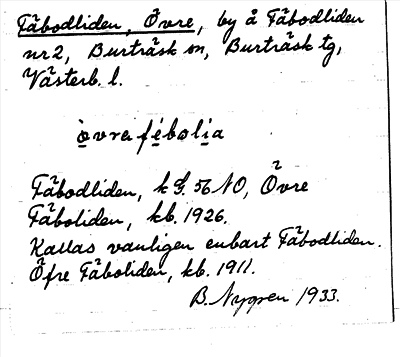 Fäbodliden, Övre, by å Fäbodliden
nr 2, Burträsk sn, Burträsk tg,
Västerb. l.
òvra fébolia
Fäbodliden, k 56 NO, Övre
Fäboliden, kb. 1926.
Kallas vanligen enbart Fäbodliden.
Öfre Fäboliden, kb. 1911.
B. Nygren 1933.